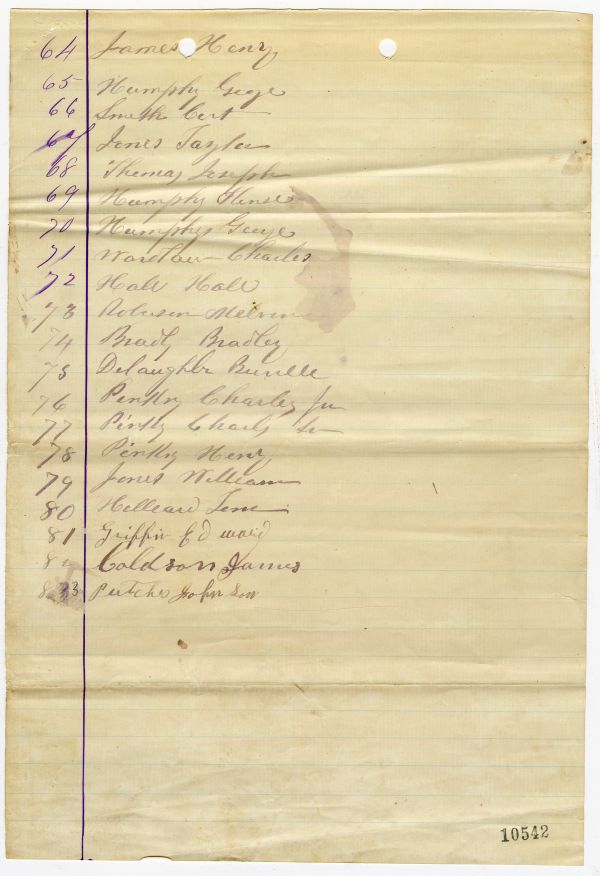 64 James Henry
65 Humphy George
66 Smith Cert
67 Jones Taylor
68 Thomas Joseph
69 Humphy
70 Humphys George
71 Wardlaw Charles
72 Hall Hall
73 Robinson Melvin
74 Bradly Bradley
75 DeLaughter Burrelle
76 Pinkky Charles Jr
77 Pinky Charls Sr
78 Pinkky Henry
79 Jones William
80 Helleard
81 Griffin Edward
Coldson James
83 John Son
10542